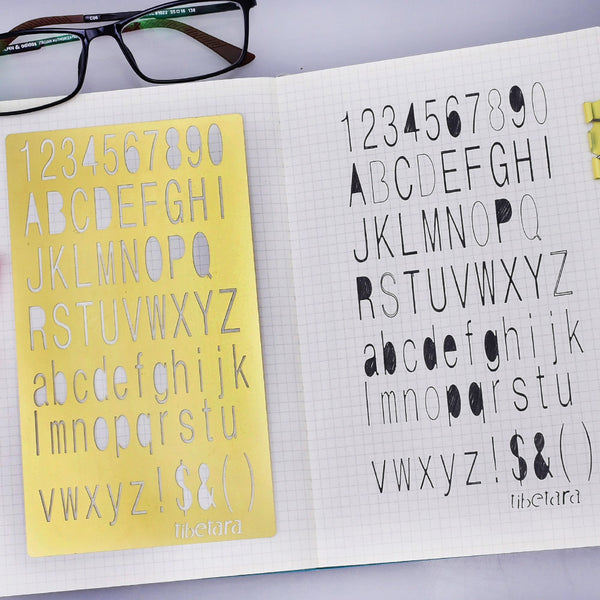 1234567890
ABCDEFGHI
JKLMNOPQ
RSTUVWXYZ
abcdefghijk
lmnopqrstu
vwxyz!$&()
tibetara
1234567890
ABCDEFGHI
JKLMNOPQ
RSTUVWXYZ
abcdefghijk
lmnopqrstu
vwxyz!$&()
tibetara